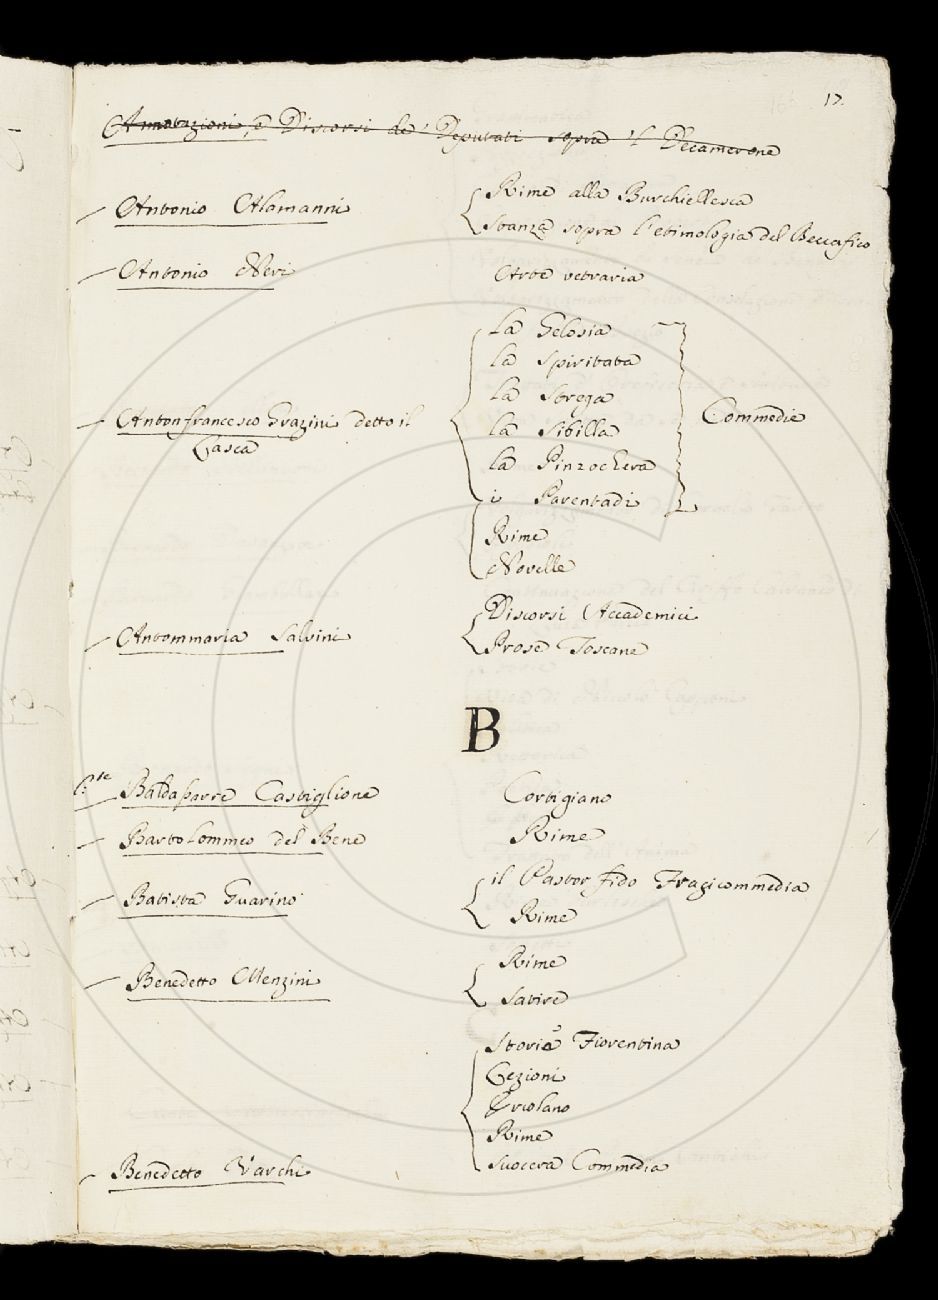 17.
Annotazioni, e Discorsi de' Deputati sopra 'l Decamerone
Antonio Alamanni
Rime alla Burchiellesca
Stanza sopra l'etimologia del Beccafico
Antonio Neri
Arte vetraria
Antonfrancesco Grazini detto il
Lasca
La Gelosia
La Spiritata
La Strega
La Sibilla
La Pinzochera
i Parentadi
Commedie
Rime
Novelle
Antommaria Salvini
Discorsi Accademici
Prose Toscane
B
C.te Baldassarre Castiglione
Cortigiano
Bartolommeo del Bene
Rime
Batista Guarino
il Pastor fido Tragicommedia
Rime
Benedetto Menzini
Rime
Satire
Storia Fiorentina
Lezioni
Ercolano
Rime
Benedetto Varchi
Suocera Commedia